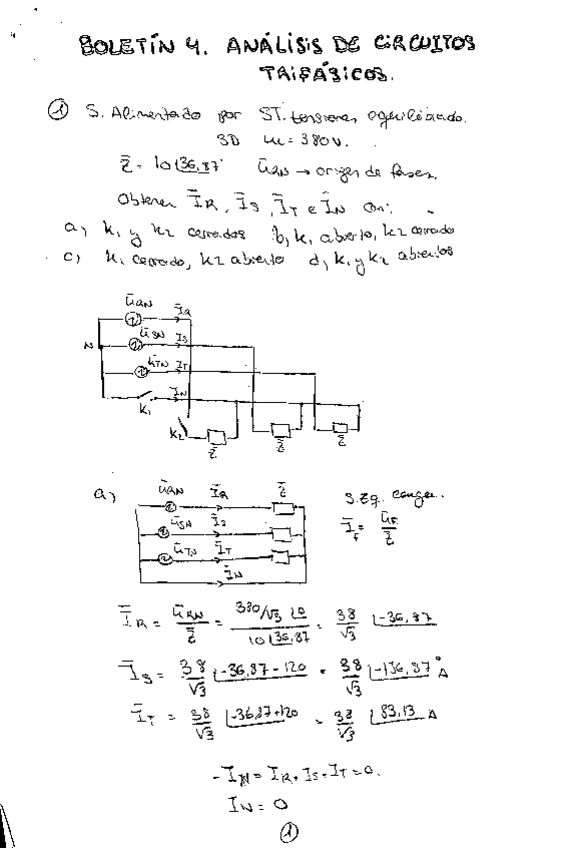 BOLETÍN 4. ANÁLISIS DE CIRCUITOS
TRIFÁSICOS.
① S. Alimentado por ST. tensiones equilibrado.
SD UL = 380V.
Z̄ = 10∠36,87° ŪRN → origen de fases.
Obtener ĪR, ĪS, ĪT e ĪN con:
a) K1 y K2 cerrados b) K1 abierto, K2 cerrado
c) K1 cerrado, K2 abierto d) K1 y K2 abiertos
ŪRN ĪR
ŪSN ĪS
N ŪTN ĪT
ĪN
K1
K2 Z̄ Z̄ Z̄
a) ŪRN ĪR Z̄ S. Eq. 
ŪSN ĪS Īf = Ūf / Z̄
ŪTN ĪT
ĪN
ĪR = ŪRN / Z̄ = 380/√3 ∠0 / 10∠36,87 = 38/√3 ∠-36,87
ĪS = 38/√3 ∠-36,87-120 = 38/√3 ∠-156,87° A
ĪT = 38/√3 ∠-36,87+120 = 38/√3 ∠83,13 A
-ĪN = ĪR + IS + IT = 0.
IN = 0
①